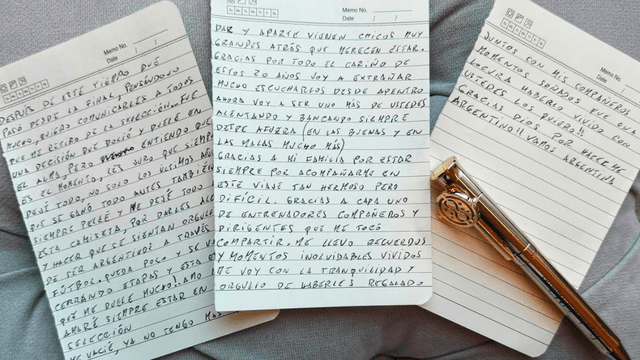 Memo No.
Date / /
DESPUES DE ESTE TIEMPO QUE
PASÓ DESDE LA FINAL, PENSÁNDOLO
MUCHO, QUIERO COMUNICARLES A TODOS
QUE ME RETIRO DE LA SELECCIÓN. FUE
UNA DECISIÓN QUE DOLIÓ Y DUELE EN
EL ALMA, PERO ENTIENDO QUE
ES EL MOMENTO. LES JURO QUE SIEMPRE
DEJÉ TODO, NO SOLO LOS ULTIMOS AÑOS
QUE SE GANÓ TODO ANTES TAMBIEN
SIEMPRE PELEÉ Y ME DEJÉ TODO
ESTA CAMISETA, POR DARLES
Y HACER QUE SE SIENTAN
DE SER ARGENTINOS A TRAVÉS
FÚTBOL. QUEDA POCO Y SE
CERRANDO ETAPAS Y ESTA
QUE ME DUELE MUCHO!! AMO
AMARÉ SIEMPRE ESTAR EN
SELECCIÓN
ME VACIÉ, YA NO TENGO MAS
Memo No.
Date / /
DAR Y APARTE VIENEN CHICOS MUY
GRANDES ATRÁS QUE MERECEN ESTAR.
GRACIAS POR TODO EL CARIÑO DE
ESTOS 20 AÑOS VOY A EXTRAÑAR
MUCHO ESCUCHARLOS DESDE ADENTRO
AHORA VOY A SER UNO MÁS DE USTEDES
ALENTANDO Y BANCANDO SIEMPRE
DESDE AFUERA (EN LAS BUENAS Y EN
LAS MALAS MUCHO MÁS)
GRACIAS A MI FAMILIA POR ESTAR
SIEMPRE POR ACOMPAÑARME EN
ESTE VIAJE TAN HERMOSO PERO
DIFÍCIL. GRACIAS A CADA UNO
DE ENTRENADORES COMPAÑEROS Y
DIRIGENTES QUE ME TOCÓ
COMPARTIR. ME LLEVO RECUERDOS
Y MOMENTOS INOLVIDABLES VIVIDOS
ME VOY CON LA TRANQUILIDAD Y
ORGULLO DE HABERLES REGALADO
Memo No.
Date / /
JUNTOS CON MIS COMPAÑEROS
MOMENTOS SOÑADOS FUE UNA
LOCURA HABERLO VIVIDO CON
USTEDES LOS QUIERO!!
GRACIAS DIOS POR HACERME
ARGENTINO!! VAMOS ARGENTINA